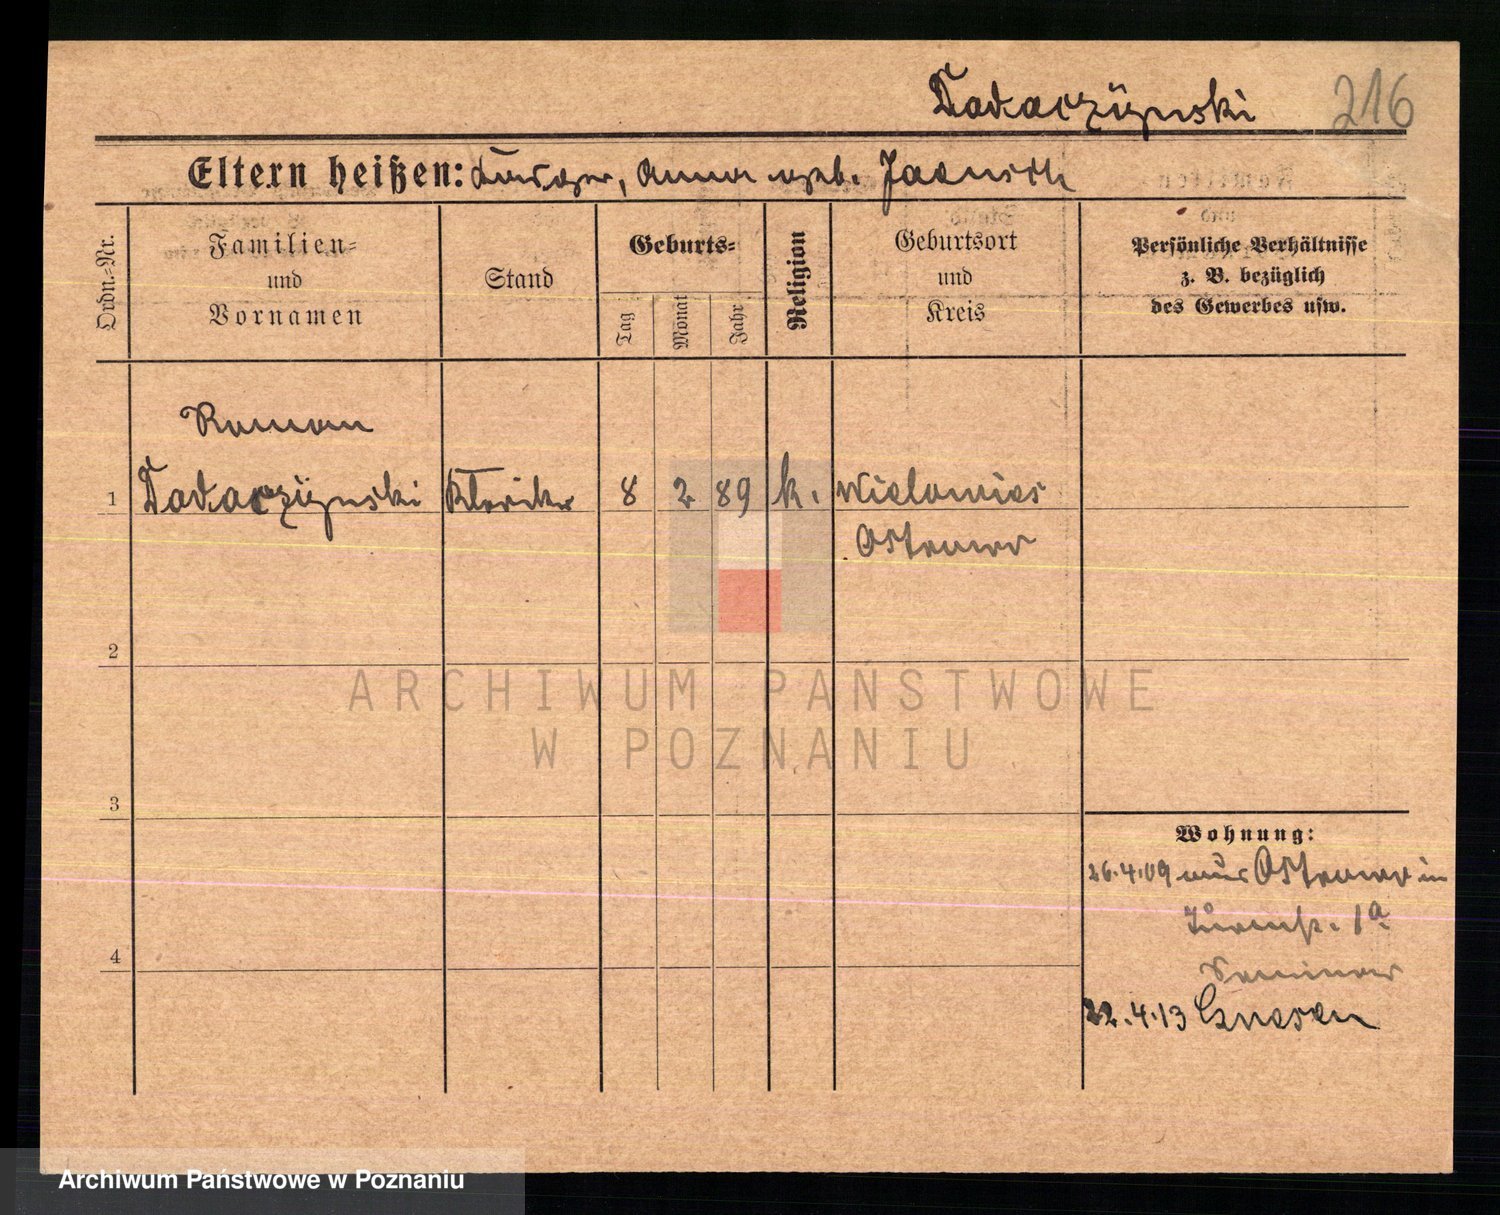 Dadaczÿnski 216
Eltern heißen: Anna geb. Jaensch
Ordn.=Nr.
Familien=
und
Vornamen
Stand
Geburts=
Tag
Monat
Jahr
Religion
Geburtsort
und
Kreis
Persönliche Verhältnisse
z. B. bezüglich
des Gewerbes usw.
Roman
1 Dadaczÿnski Kleriker 8 2 89 k. Wielowies
Ostrowo
2
ARCHIWUM PAŃSTWOWE
W POZNANIU
3
Wohnung:
26.4.09 aus Ostrowo in
1a
Seminar
4
22.4.13 Gnesen
Archiwum Państwowe w Poznaniu